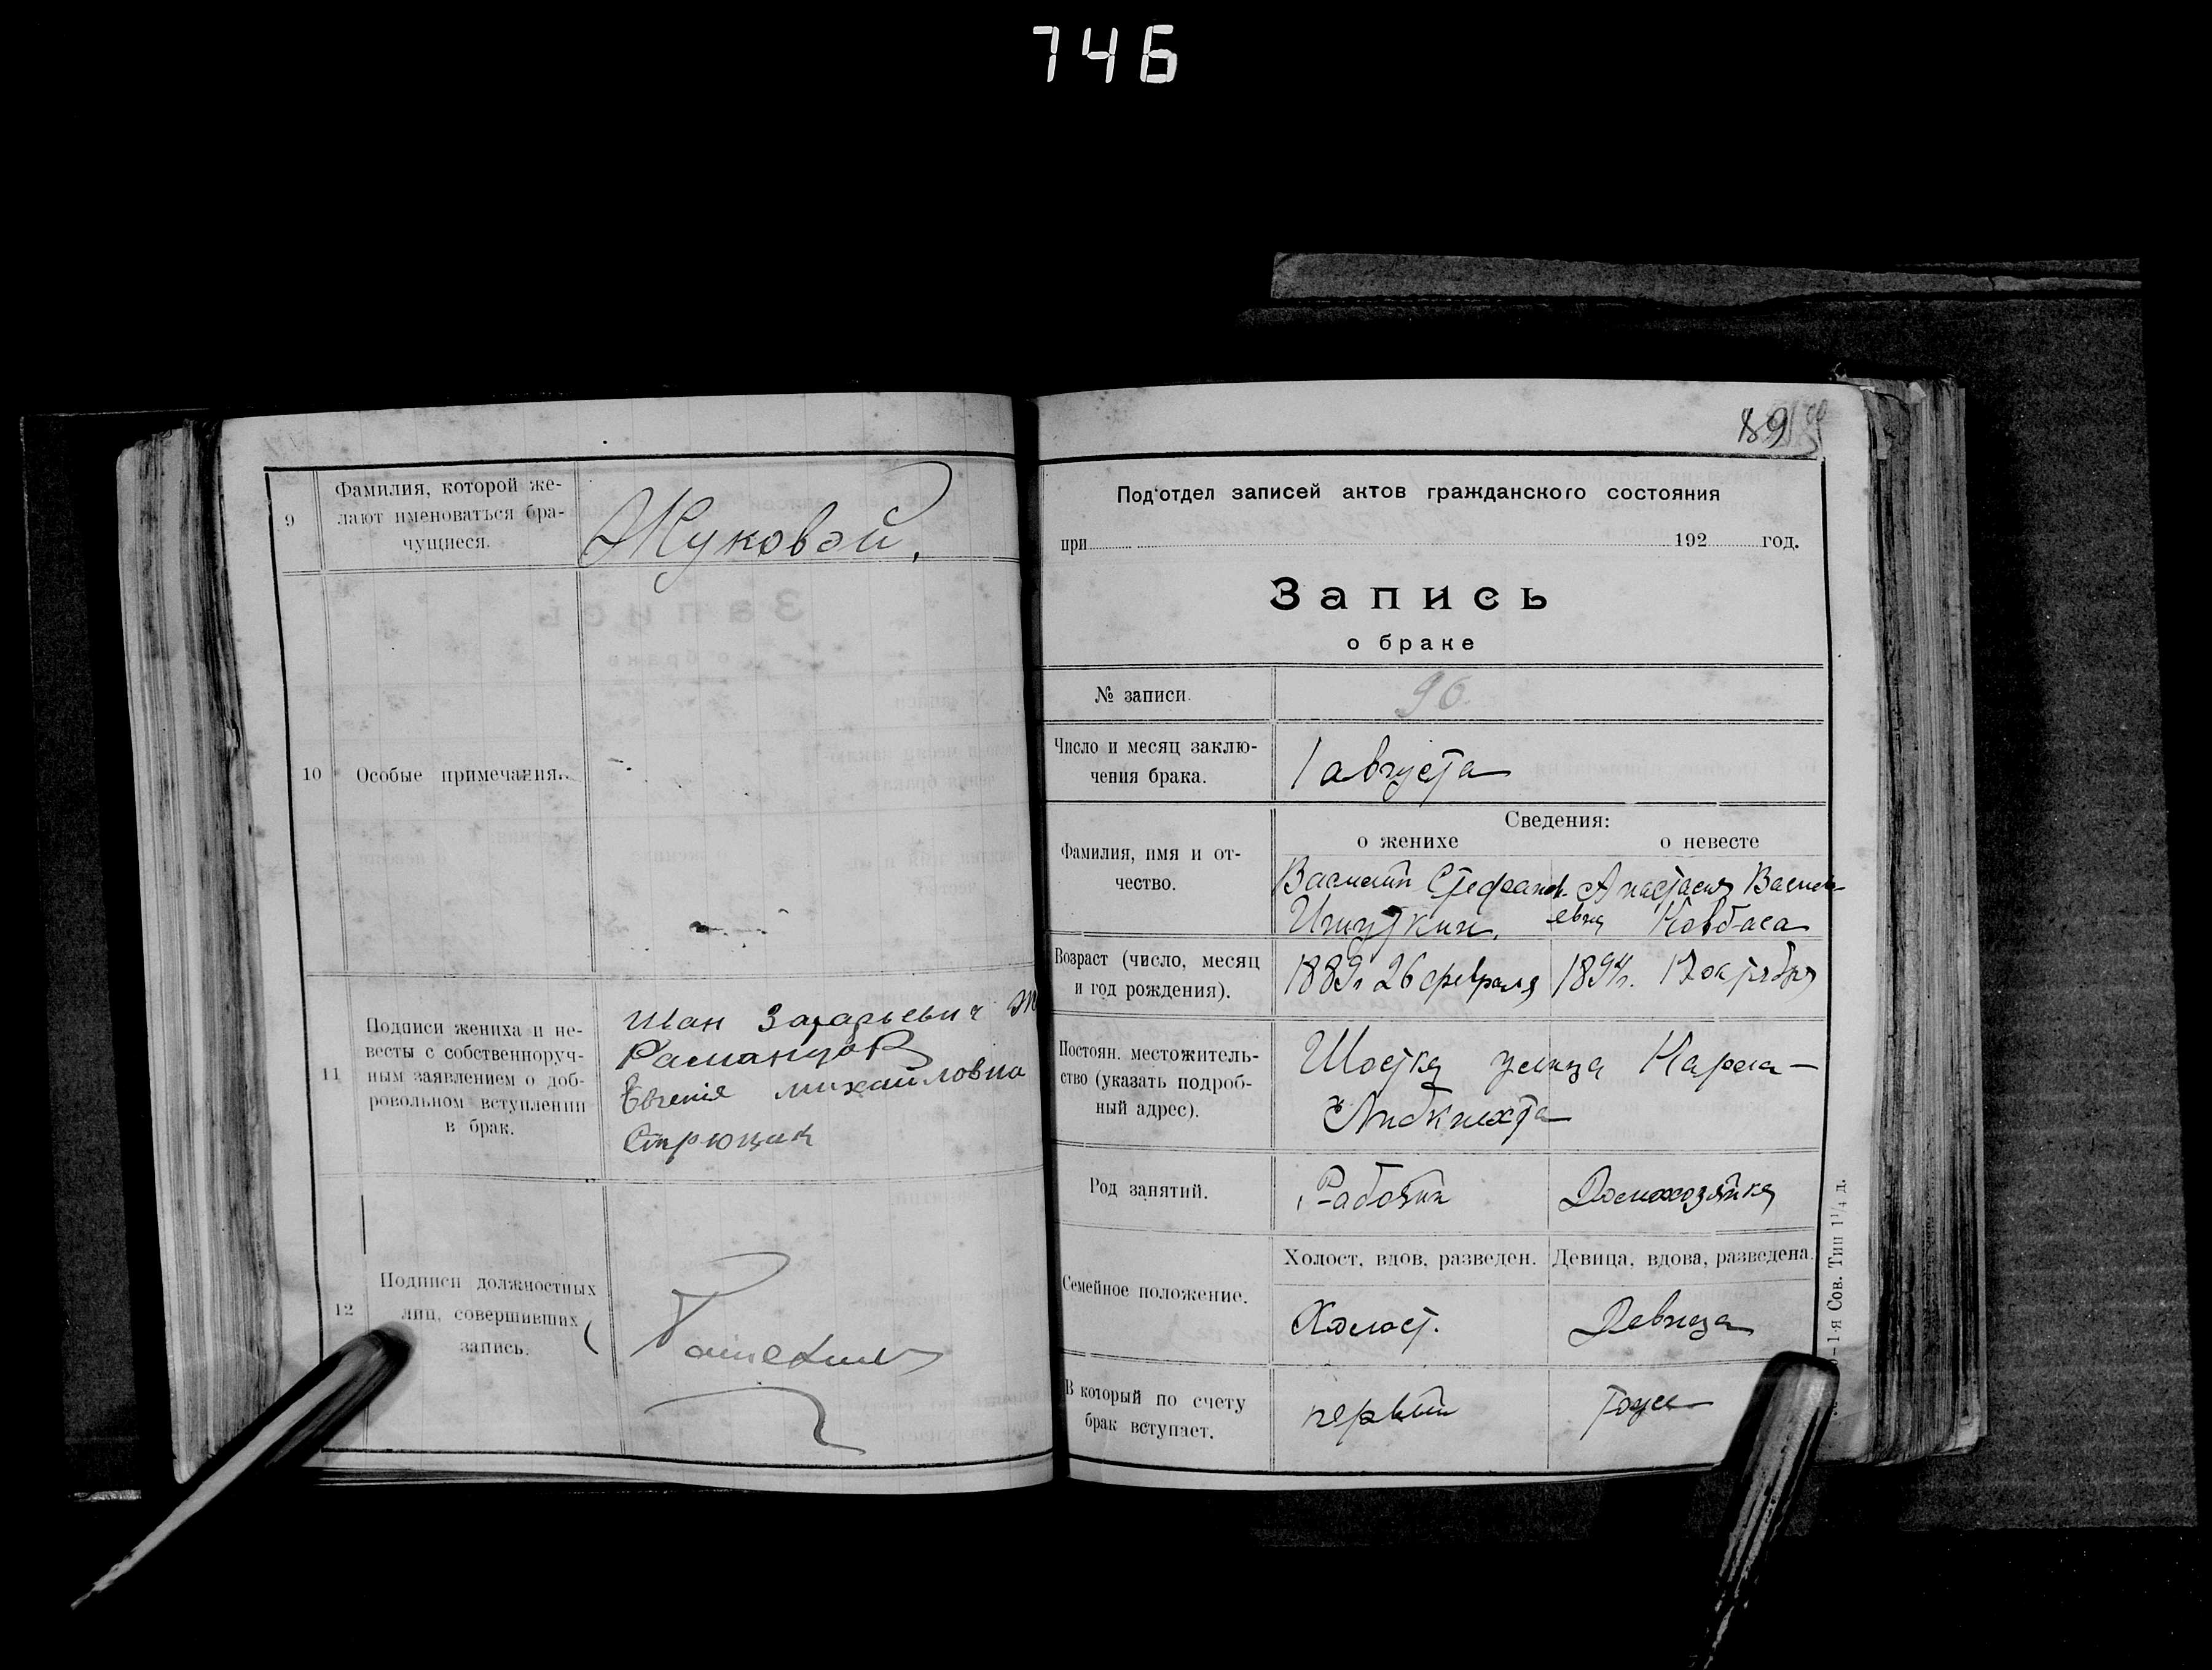 746
9
Фамилия, которой же-
лают именоваться бра-
чущиеся.
Жуковой.
10
Особые примечания.
11
Подписи жениха и не-
весты с собственноруч-
ным заявлением о доб-
ровольном вступлении
в брак.
Иван Захарьевич
Евгенія михайловна
12
Подписи должностных
лиц, совершивших
запись.
89
Подотдел записей актов гражданского состояния
при 192 год.
Запись
о браке
№ записи.
96.
Число и месяц заклю-
чения брака.
1 августа
Сведения:
Фамилия, имя и от-
чество.
о женихе
о невесте
Василий Стефанов. Анастасия Василь-
евна Ковбаса
Возраст (число, месяц
и год рождения).
1889г 26 февраля
1894г. 17 октября
Постоян. местожитель-
ство (указать подроб-
ный адрес).
Шостка улица Карла-
Либкнехта
Род занятий.
Рабочий
Домохозяйка
Семейное положение.
Холост, вдов, разведен.
Девица, вдова, разведена.
Холост.
Девица
В который по счету
брак вступает.
первый
тоже
1-я Сов. Тип 1¼ д.